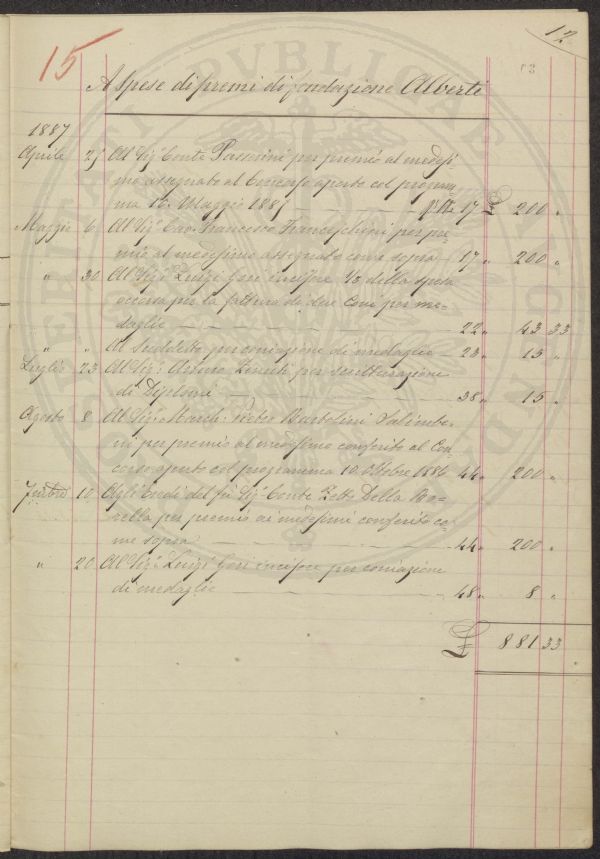 12
15
A spese di premi di fondazione Alberti
1887
Aprile 25 Al Sig. Conte Passerini per premio al medesi-
mo assegnato al Concorso aperto col program-
ma 16 Maggio 1881 — 17 £ 200 "
Maggio 6 Al Sig. Cav. Francesco Franceschini per pre-
mio al medesimo assegnato come sopra — 17 " 200 "
" 30 Al Sig. Luigi Gori incisore 1/3 della spesa
occorsa per la fattura di due Coni per me-
daglie — 22 " 43 33
" " Al Suddetto per coniazione di medaglie — 23 " 15 "
Luglio 23 Al Sig. Arturo per scritturazione
di Diplomi — 38 " 15 "
Agosto 8 Al Sig. March. Pietro Bartolini Salimbe-
ni per premio al medesimo conferito al Con-
corso aperto col programma 10 Ottobre 1886 44 " 200 "
7mbre 10 Agli Eredi del fu Sig. Conte Della Ba-
rella per premio ai medesimi conferito co-
me sopra — 44 " 200 "
" 20 Al Sig. Luigi Gori incisore per coniazione
di medaglie — 48 " 8 "
£ 881 33
PVBLICAE